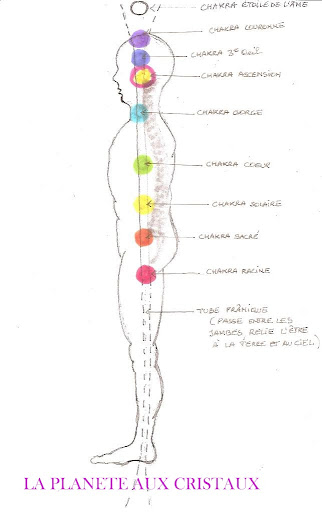 CHAKRA ÉTOILE DE L'ÂME
CHAKRA COURONNE
CHAKRA 3e Oeil
CHAKRA ASCENSION
CHAKRA GORGE
CHAKRA COEUR
CHAKRA SOLAIRE
CHAKRA SACRÉ
CHAKRA RACINE
TUBE PRÂNIQUE
(PASSE ENTRE LES
JAMBES RELIE L'ÊTRE
À LA TERRE ET AU CIEL)
LA PLANETE AUX CRISTAUX